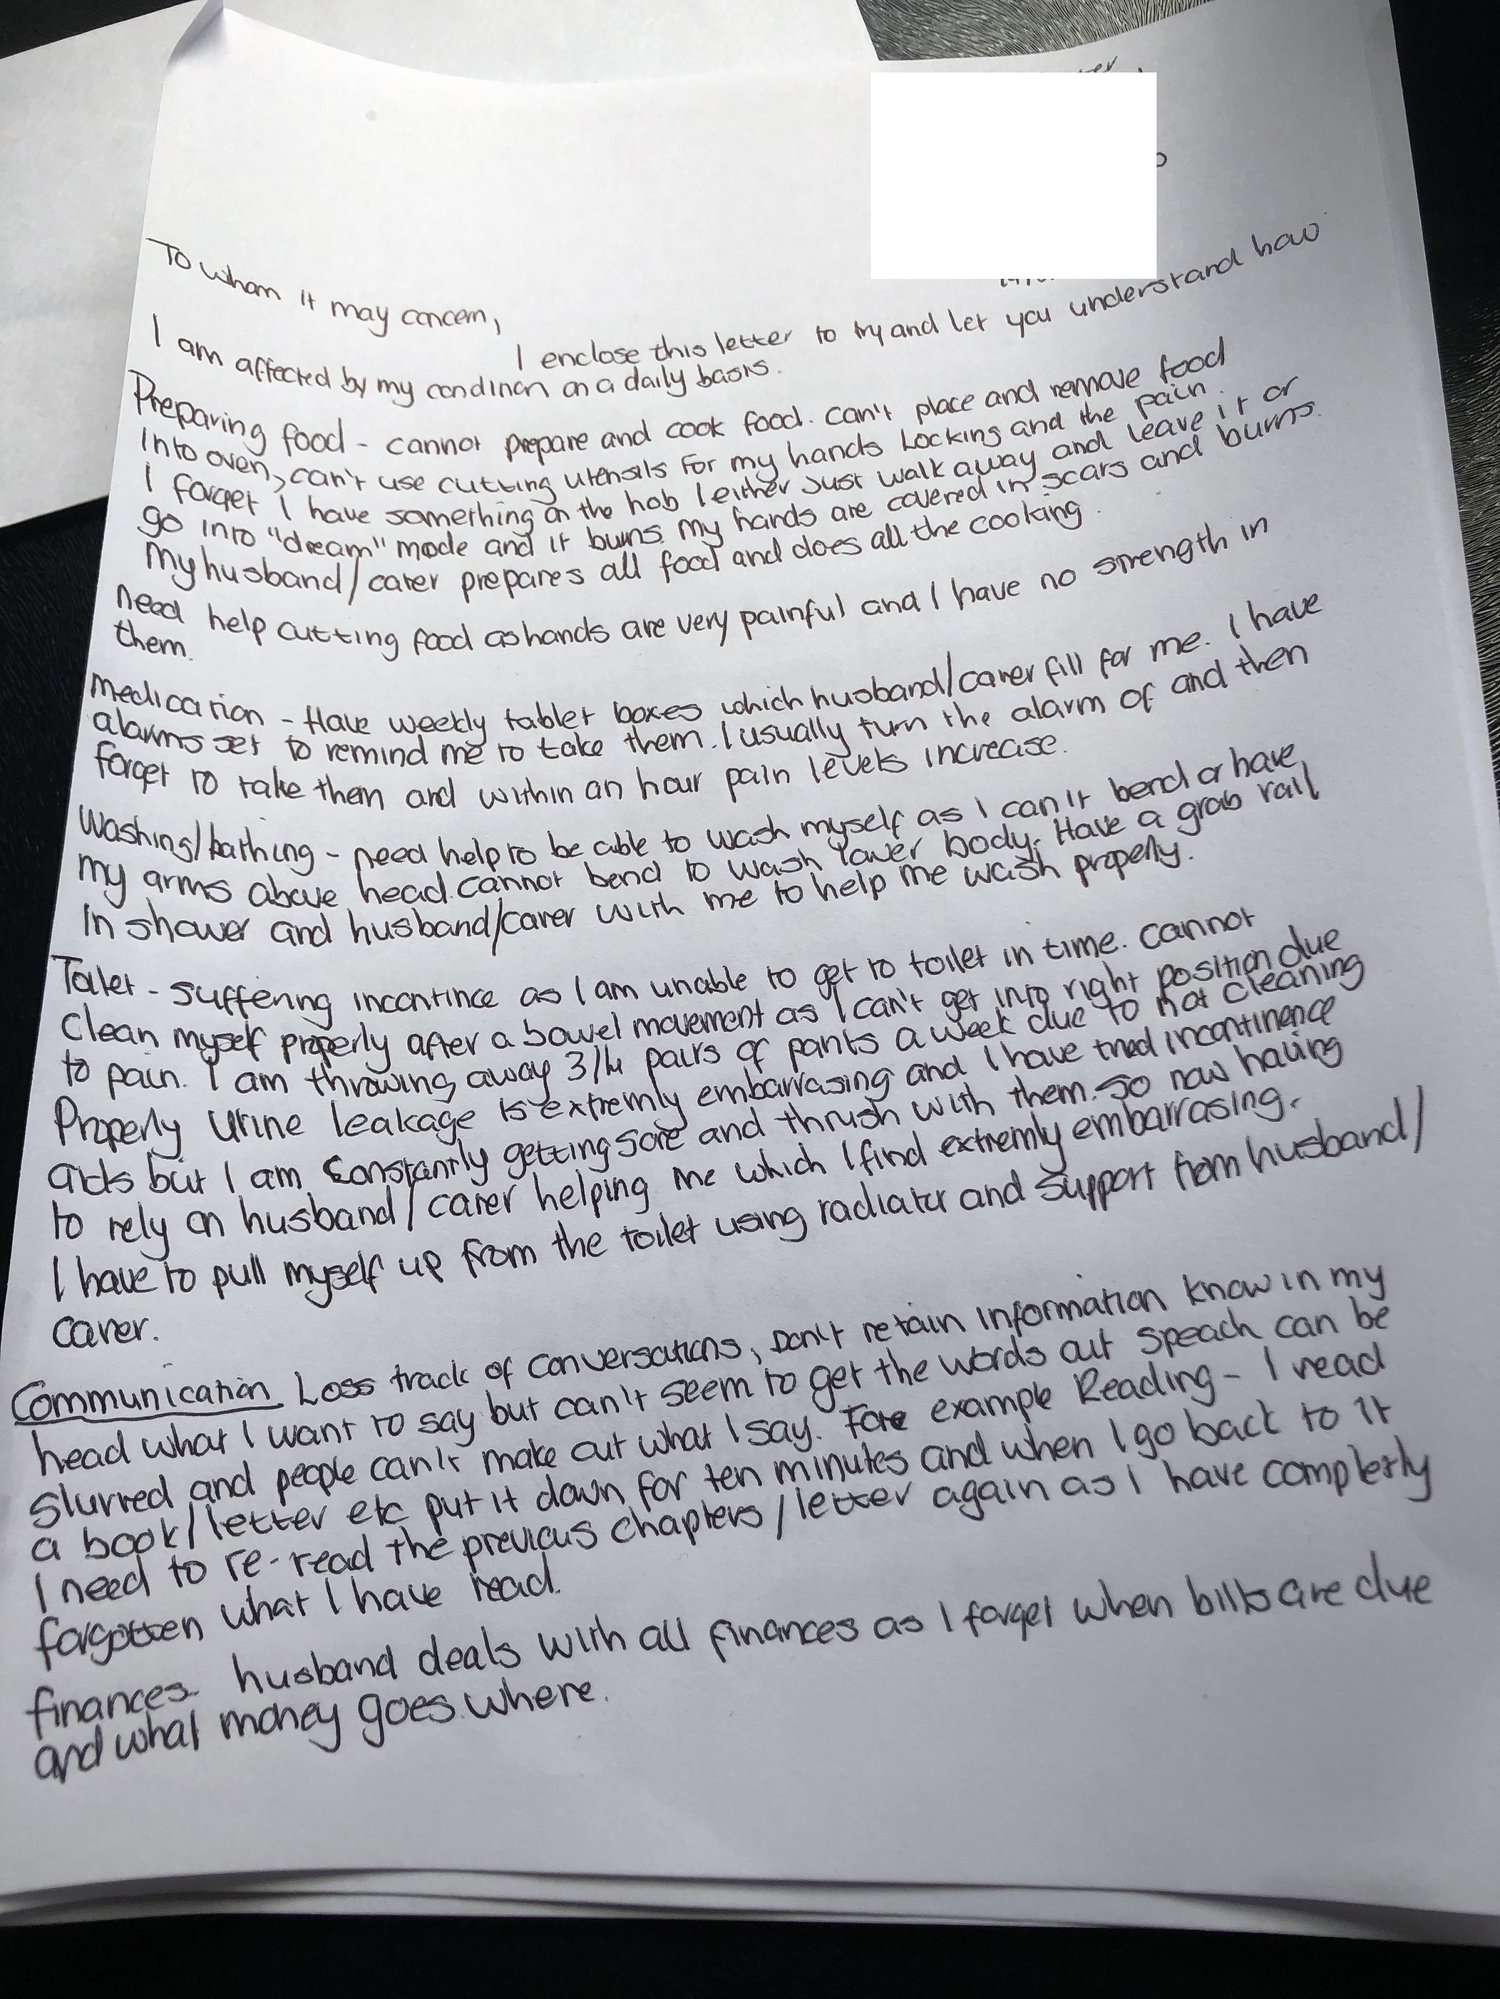 To whom it may concern,
I enclose this letter to try and let you understand how
I am affected by my condition on a daily basis.
Preparing food - cannot prepare and cook food. Can't place and remove food
into oven, can't use cutting utensils for my hands locking and the pain.
I forget I have something on the hob I either just walk away and leave it or
go into "dream" mode and it burns. my hands are covered in scars and burns.
My husband/carer prepares all food and does all the cooking.
need help cutting food as hands are very painful and I have no strength in
them.
Medication - Have weekly tablet boxes which husband/carer fill for me. I have
alarms set to remind me to take them. I usually turn the alarm of and then
forget to take them and within an hour pain levels increase.
Washing/bathing - need help to be able to wash myself as I can't bend or have
my arms above head. cannot bend to wash lower body. Have a grab rail
in shower and husband/carer with me to help me wash properly.
Toilet - suffering incontince as I am unable to get to toilet in time. Cannot
clean myself properly after a bowel movement as I can't get into right position due
to pain. I am throwing away 3/4 pairs of pants a week due to not cleaning
properly urine leakage is extremly embarrasing and I have tried incontinence
aids but I am constantly getting sore and thrush with them. So now having
to rely on husband/carer helping me which I find extremly embarrasing.
I have to pull myself up from the toilet using radiator and support from husband/
carer.
Communication Loss track of conversations, Don't retain information know in my
head what I want to say but can't seem to get the words out speach can be
slurred and people can't make out what I say. Fore example Reading - I read
a book/letter etc put it down for ten minutes and when I go back to it
I need to re-read the previous chapters/letter again as I have completly
forgotten what I have read.
finances- husband deals with all finances as I forget when bills are due
and what money goes where.